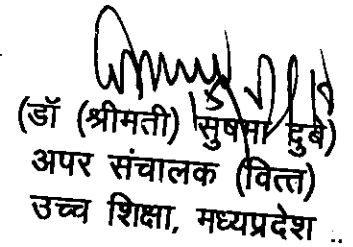 (डॉ (श्रीमती) सुषमा दुबे)
अपर संचालक (वित्त)
उच्च शिक्षा, मध्यप्रदेश